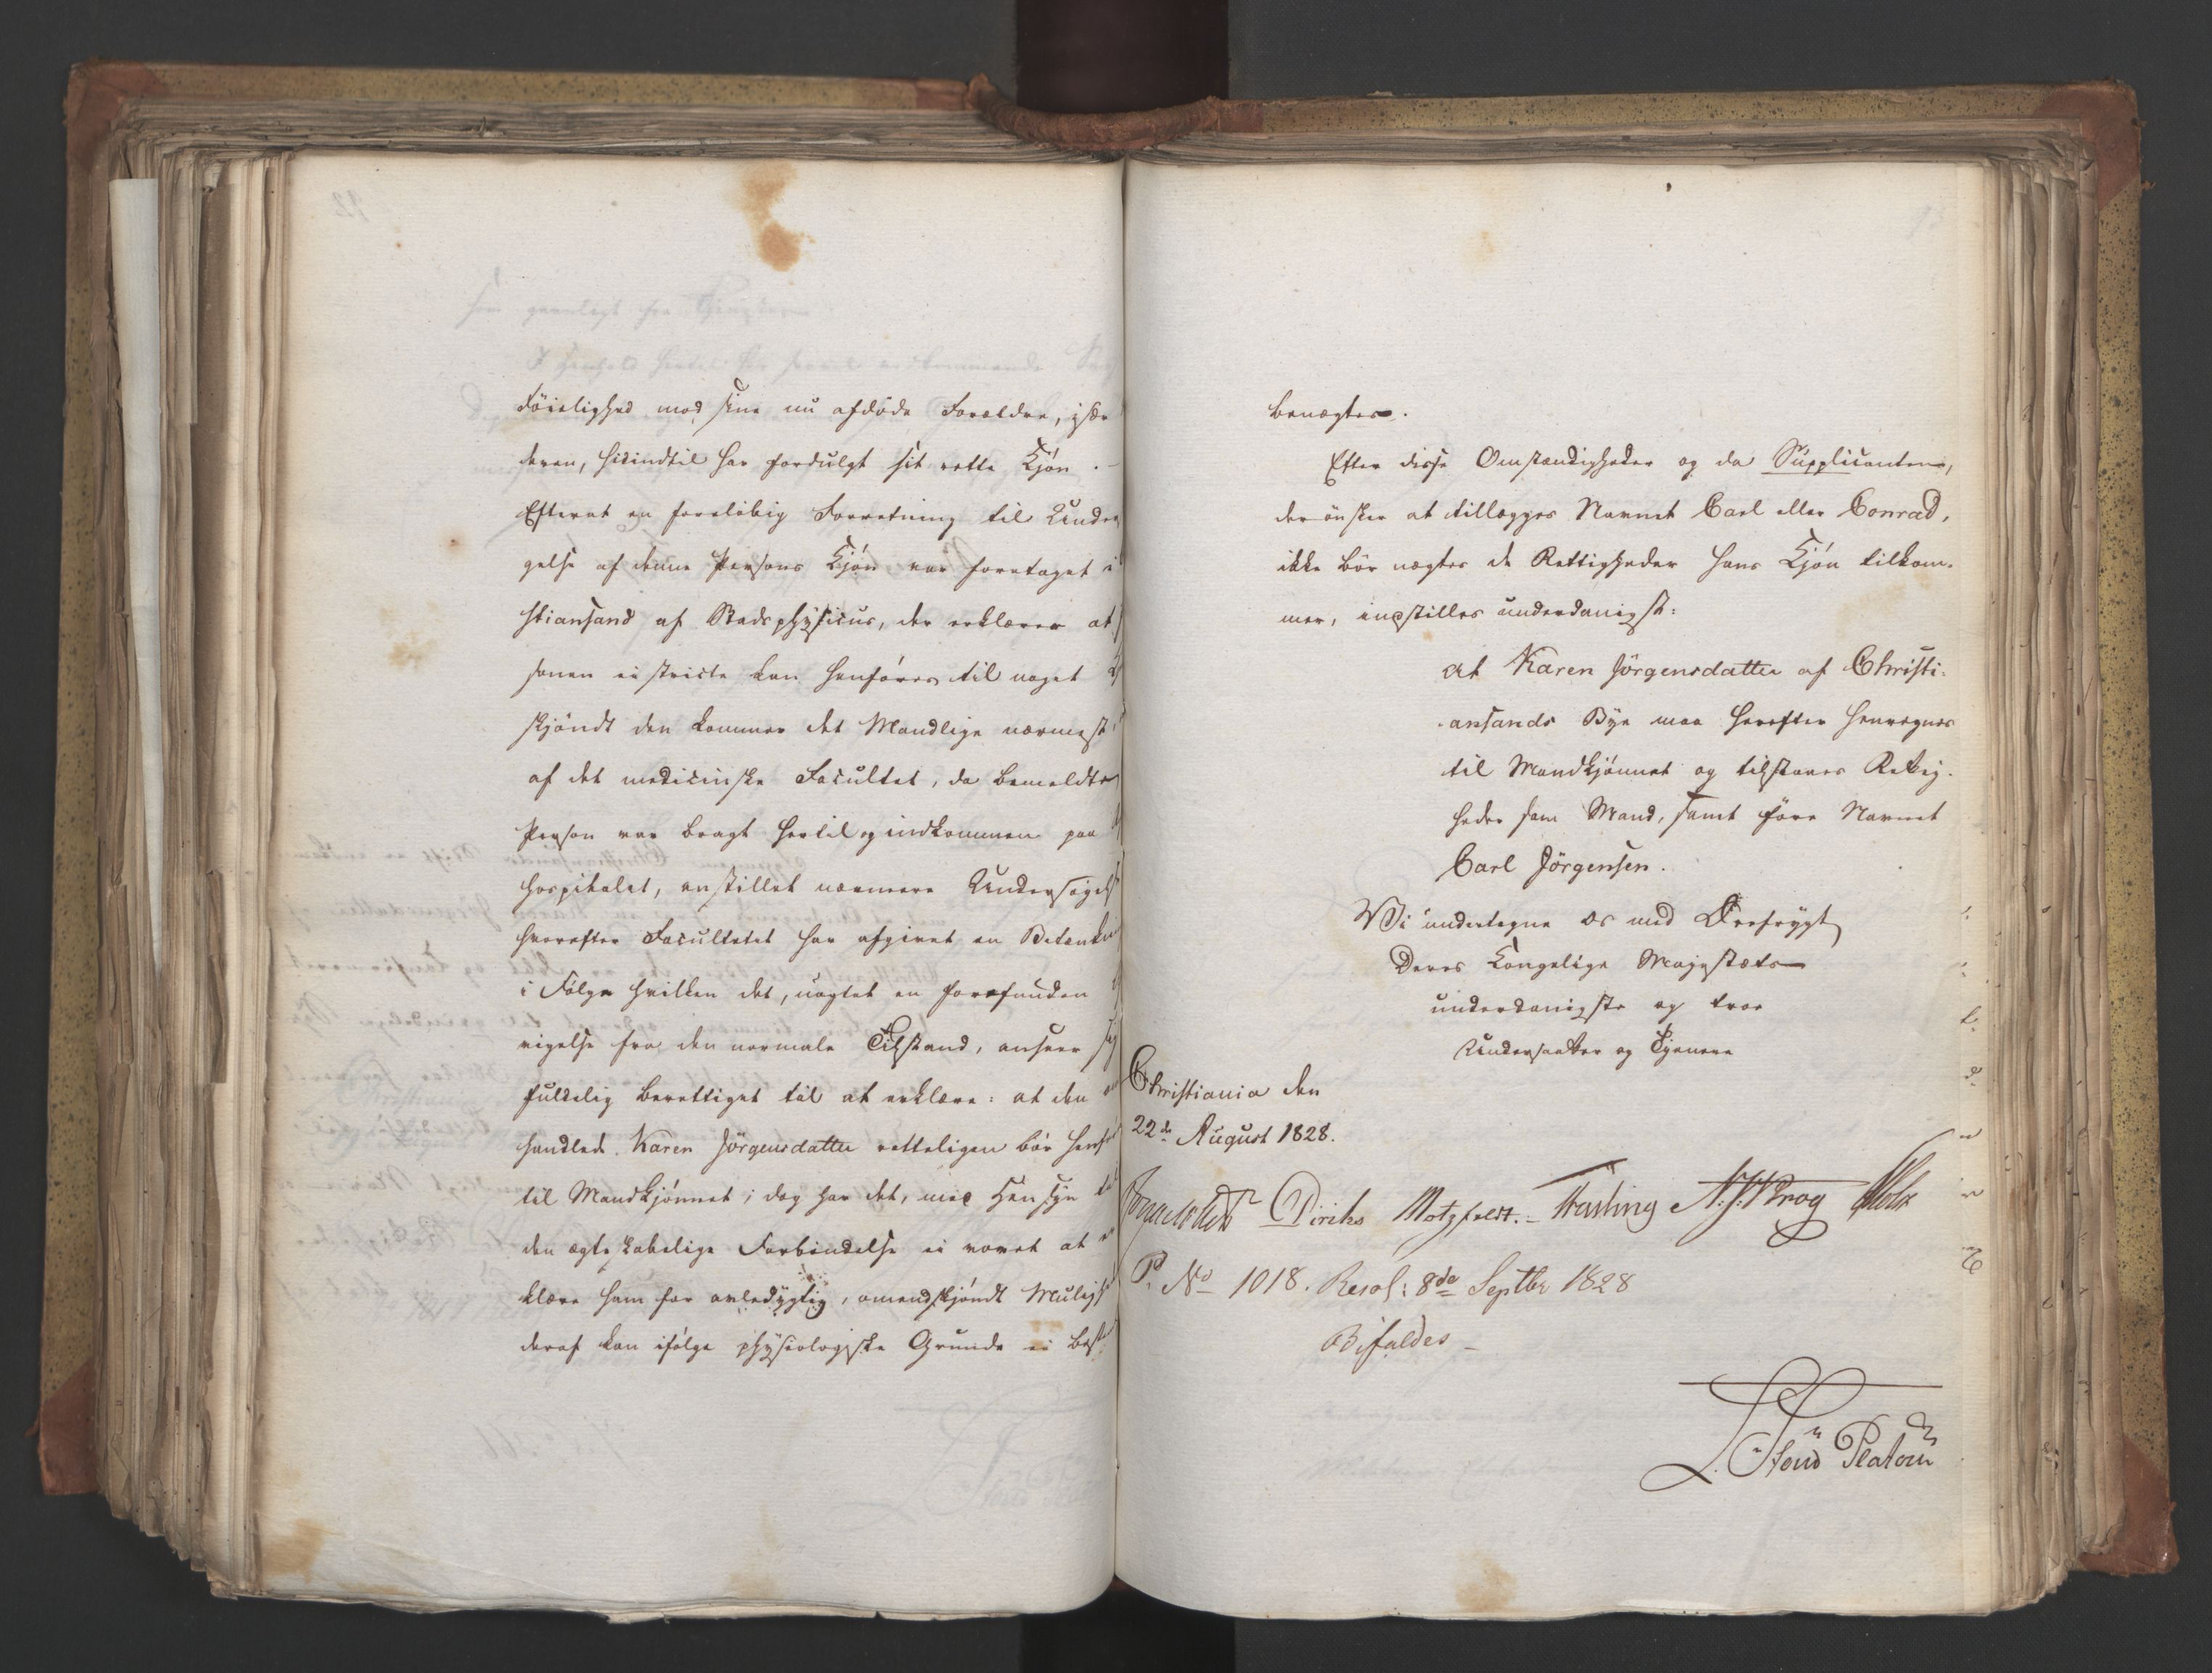 Föielighed mod sine nu afdøde Forældre, især
deren, hidindtil har fordulgt sit rette Kjön.
Efterat en foreløbig Forretning til Under
gelse af denne Persons Kjön var foretaget i
stiansand af Stadsphysicus, der erklærer at
sonen ei stricte kan henføres til noget
skjöndt den kommer det Mandlige nærmest,
af det medicinske Facultet, da bemeldte
Person var bragt hertil og indkommen paa
Hospitalet, anstillet nærmere Undersøgels
hvorefter Facultetet har afgivet en Betænkn
i Følge hvilken det, uagtet en forefunden
vigelse fra den normale Tilstand, anseer sig
fuldelig berettiget til at erklære: at den
handlede Karen Jörgensdatter retteligen bör henf
til Mandkjönnet; dog har det, med Hensyn til
den ægteskabelige Forbindelse ei vovet at
klære ham for avledygtig, omendskjöndt Muligh
deraf kan ifølge physiologiske Grunde ei
benægtes.
Efter disse Omstændigheder og da Supplicanten,
der önsker at tillægges Navnet Carl eller Conrad,
ikke bör nægtes de Rettigheder hans Kjön tilkom-
mer, indstilles underdanigst:
at Karen Jörgensdatter af Christi-
ansands Bye maa herefter henregnes
til Mandkjönnet og tilstaaes Rettig-
heder som Mand, samt føre Navnet
Carl Jörgensen.
Vi undertegne os med Ærefrygt
Deres Kongelige Majestæts
underdanigste og troe
Undersaatter og Tjenere
Christiania den
22de August 1828.
Diriks Motzfeldt. Fasting N.J. Krog Holst
P. No 1018. Resol: 8de Septbr 1828
Bifaldes
Platou